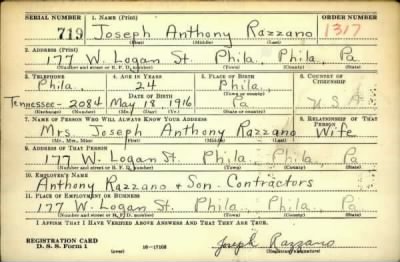 SERIAL NUMBER 1. NAME (Print) ORDER NUMBER
719 Joseph Anthony Razzano 1317
(First) (Middle) (Last)
2. ADDRESS (Print)
177 W. Logan St. Phila., Phila, Pa
(Number and street or R. F. D. number) (Town) (County) (State)
3. TELEPHONE 4. AGE IN YEARS 5. PLACE OF BIRTH 6. COUNTRY OF CITIZENSHIP
Phila. 24 Phila.,
DATE OF BIRTH (Town or county)
Tennessee-2084 May 18, 1916 Pa U.S.A.
(Exchange) (Number) (Mo.) (Day) (Yr.) (State or country)
7. NAME OF PERSON WHO WILL ALWAYS KNOW YOUR ADDRESS 8. RELATIONSHIP OF THAT PERSON
Mrs. Joseph Anthony Razzano Wife
(Mr., Mrs., Miss) (First) (Middle) (Last)
9. ADDRESS OF THAT PERSON
177 W. Logan St. Phila., Phila, Pa
(Number and street or R. F. D. number) (Town) (County) (State)
10. EMPLOYER'S NAME
Anthony Razzano & Son. Contractors
11. PLACE OF EMPLOYMENT OR BUSINESS
177 W. Logan St. Phila, Phila., Pa
(Number and street or R. F. D. number) (Town) (County) (State)
I AFFIRM THAT I HAVE VERIFIED ABOVE ANSWERS AND THAT THEY ARE TRUE.
REGISTRATION CARD Joseph Razzano
D. S. S. Form 1 (over) 16-17105 (Registrant's signature)